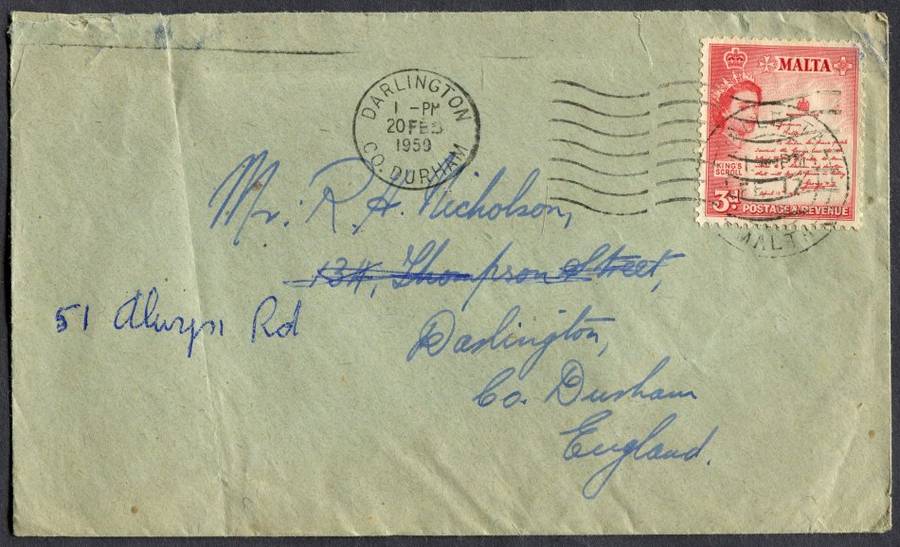 DARLINGTON
1 -PM
20 FEB
1959
CO. DURHAM
MALTA
KING'S
SCROLL
3D
POSTAGE & REVENUE
VALLETTA
PM
FE 17
MALTA
Mr. R. A. Nicholson,
134, Thompson Street,
51 Alwyn Rd
Darlington,
Co. Durham
England.